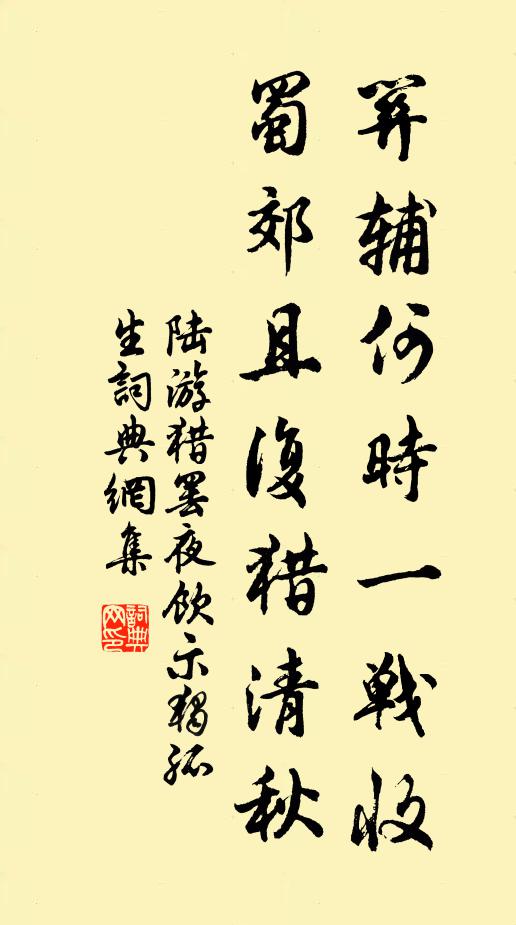 关辅何時一戦收
蜀郊且復猎清秋
陆游猎罢夜饮示獨孤
生詞典網集
詞典
网印